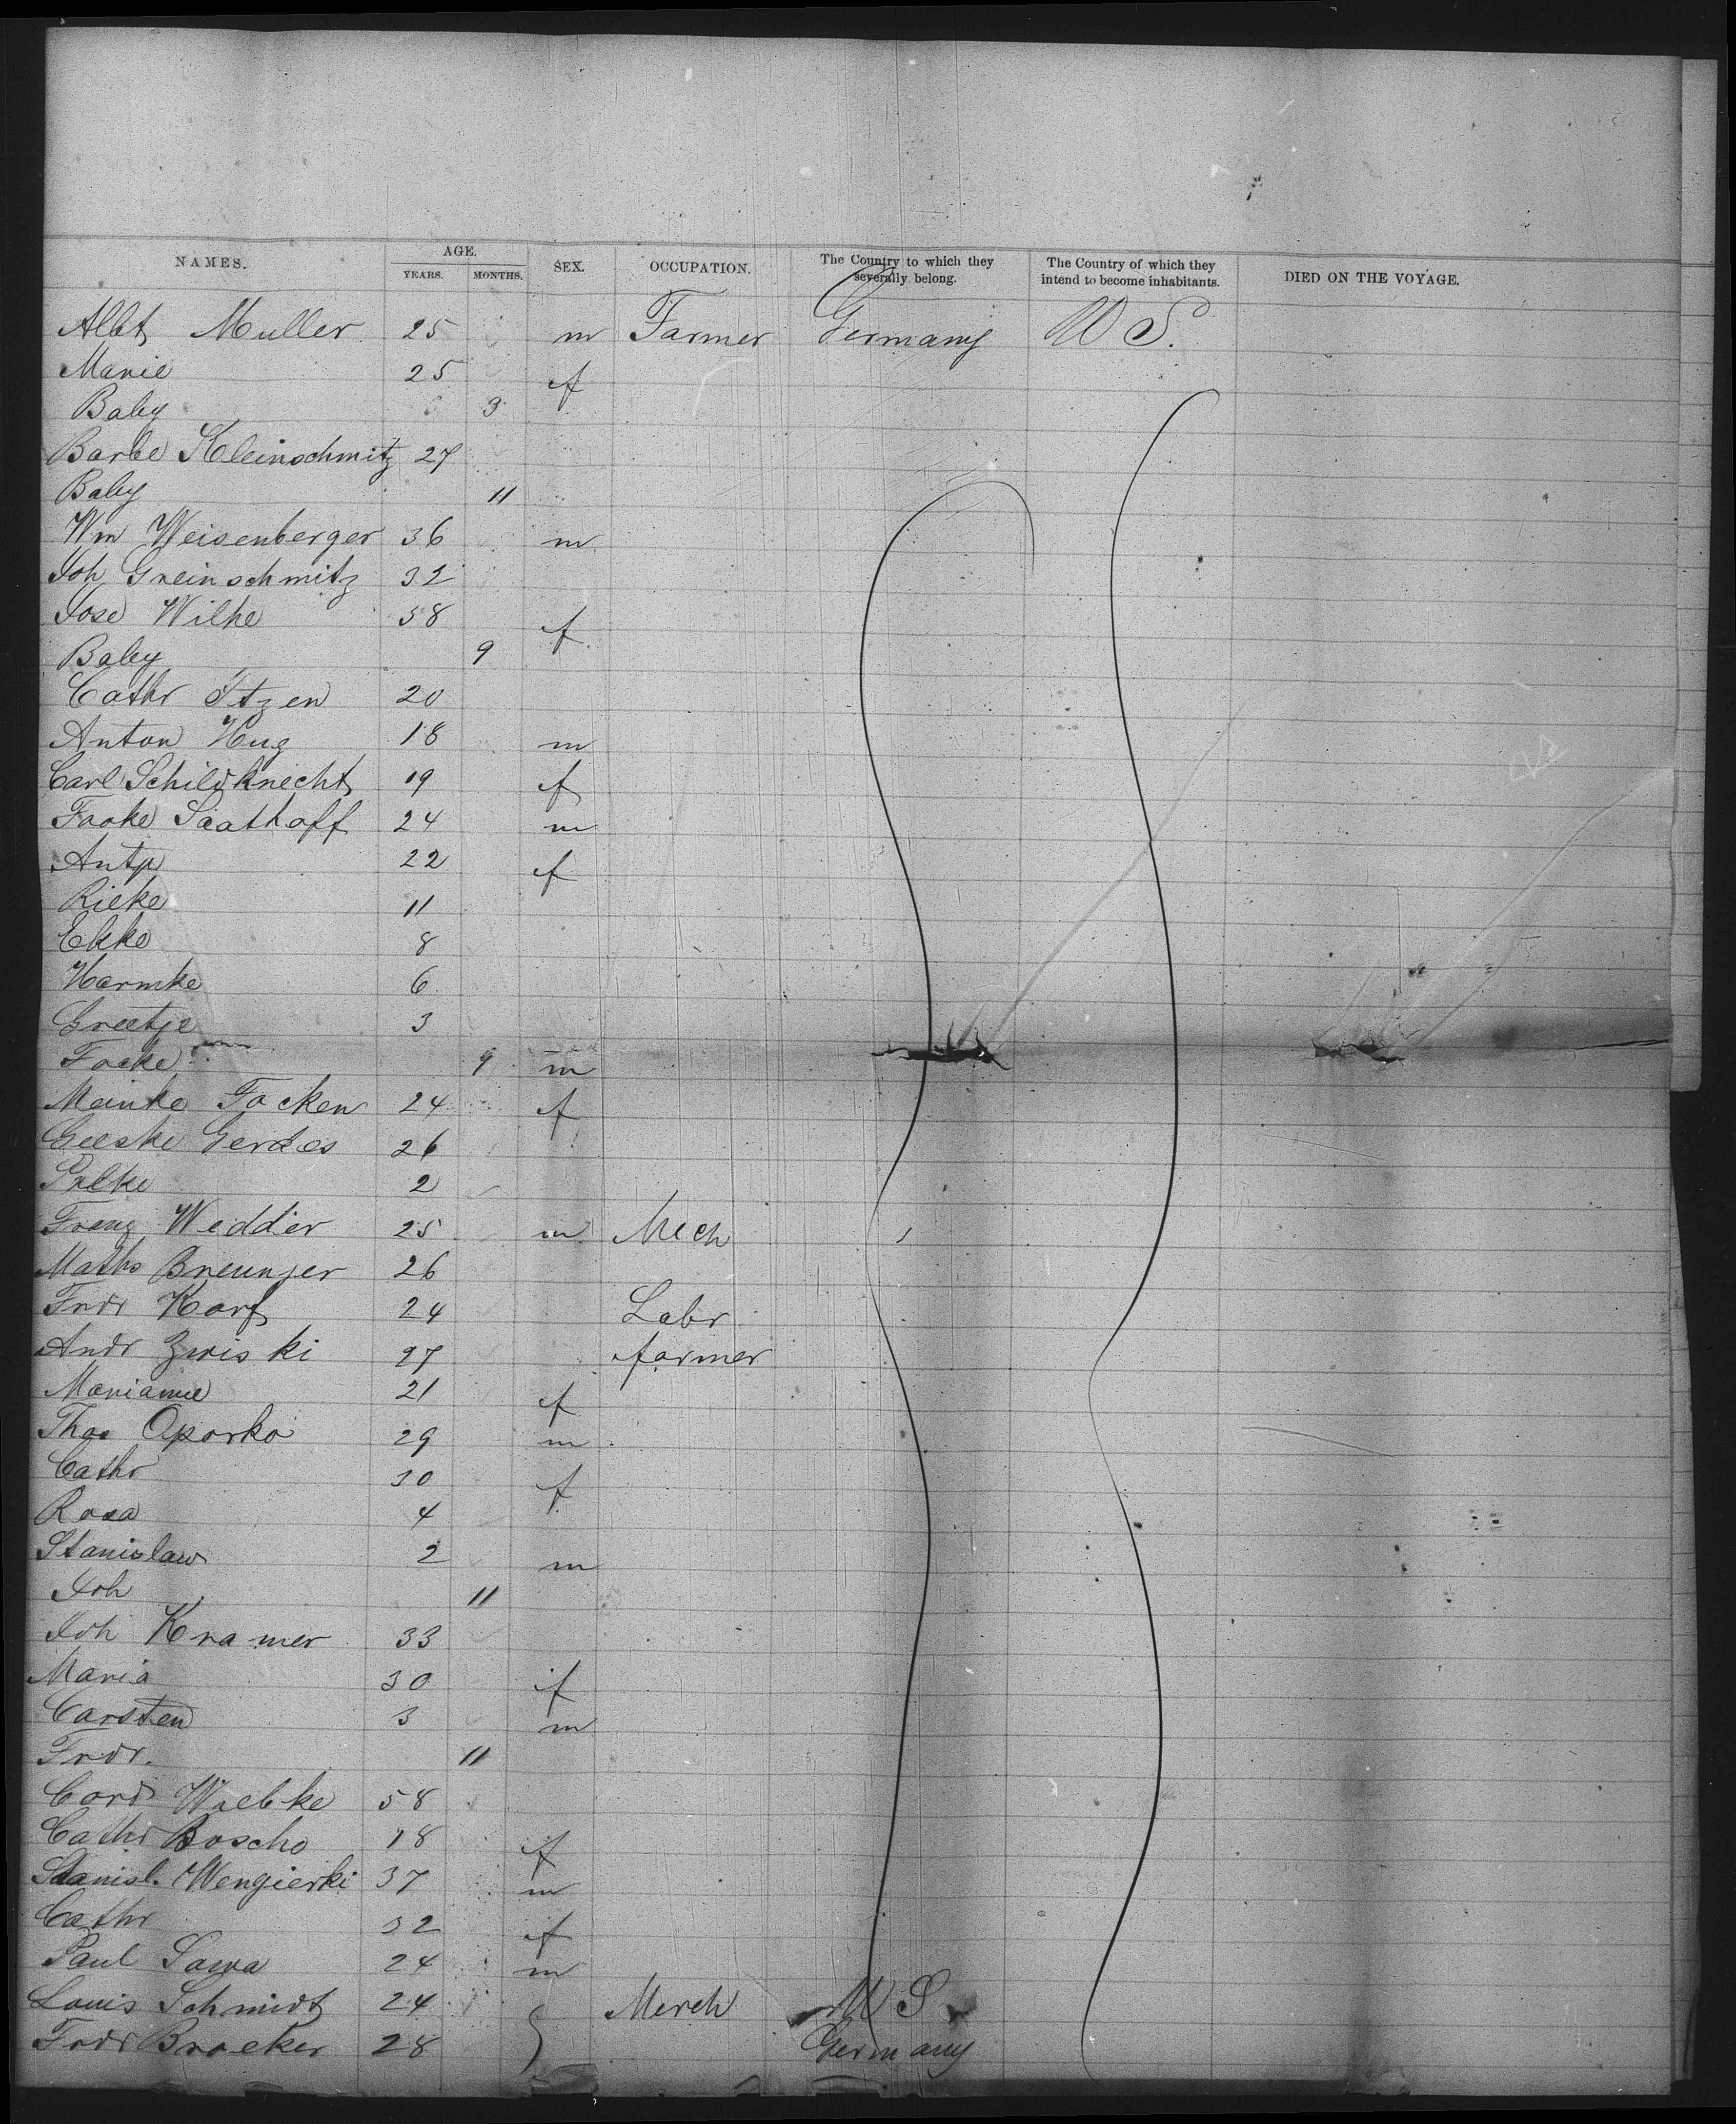 NAMES. AGE. YEARS. MONTHS. SEX. OCCUPATION. The Country to which they severally belong. The Country of which they intend to become inhabitants. DIED ON THE VOYAGE.
Albt Muller 25 m Farmer Germany U S.
Marie 25 f
Baby 3
Barbe Kleinschmitz 27
Baby 11
Wm Weisenberger 36 m
Joh Greinschmitz 32
Jose Wilke 38 f
Baby 9
Cathr Itzen 20
Anton Hug 18 m
Carl Schildknecht 19 f
Fooke Saathoff 24 m
Antje 22 f
Rieke 11
Ekke 8
Harmke 6
Greetje 3
Focke 9 m
Meinke Focken 24 f
Geeske Gerdes 26
2
Franz Weddier 25 m Mech
Maths Breunjer 26
Frdr Korf 24 Labr
Andr Zwiski 27 farmer
Marianne 21 f
Thos Oporko 29 m
Cathr 30 f
Rosa 4
Stanislaw 2 m
Joh 11
Joh Kramer 33
Maria 30 f
Carsten 3 m
Frdr. 11
Cord Wiebke 58
Cathr Boscho 18 f
Stanisl. Wengierki 37 m
Cathr 32 f
Paul Sawa 24 m
Louis Schmidt 24 Merch U S
Frdr Brocker 28 Germany